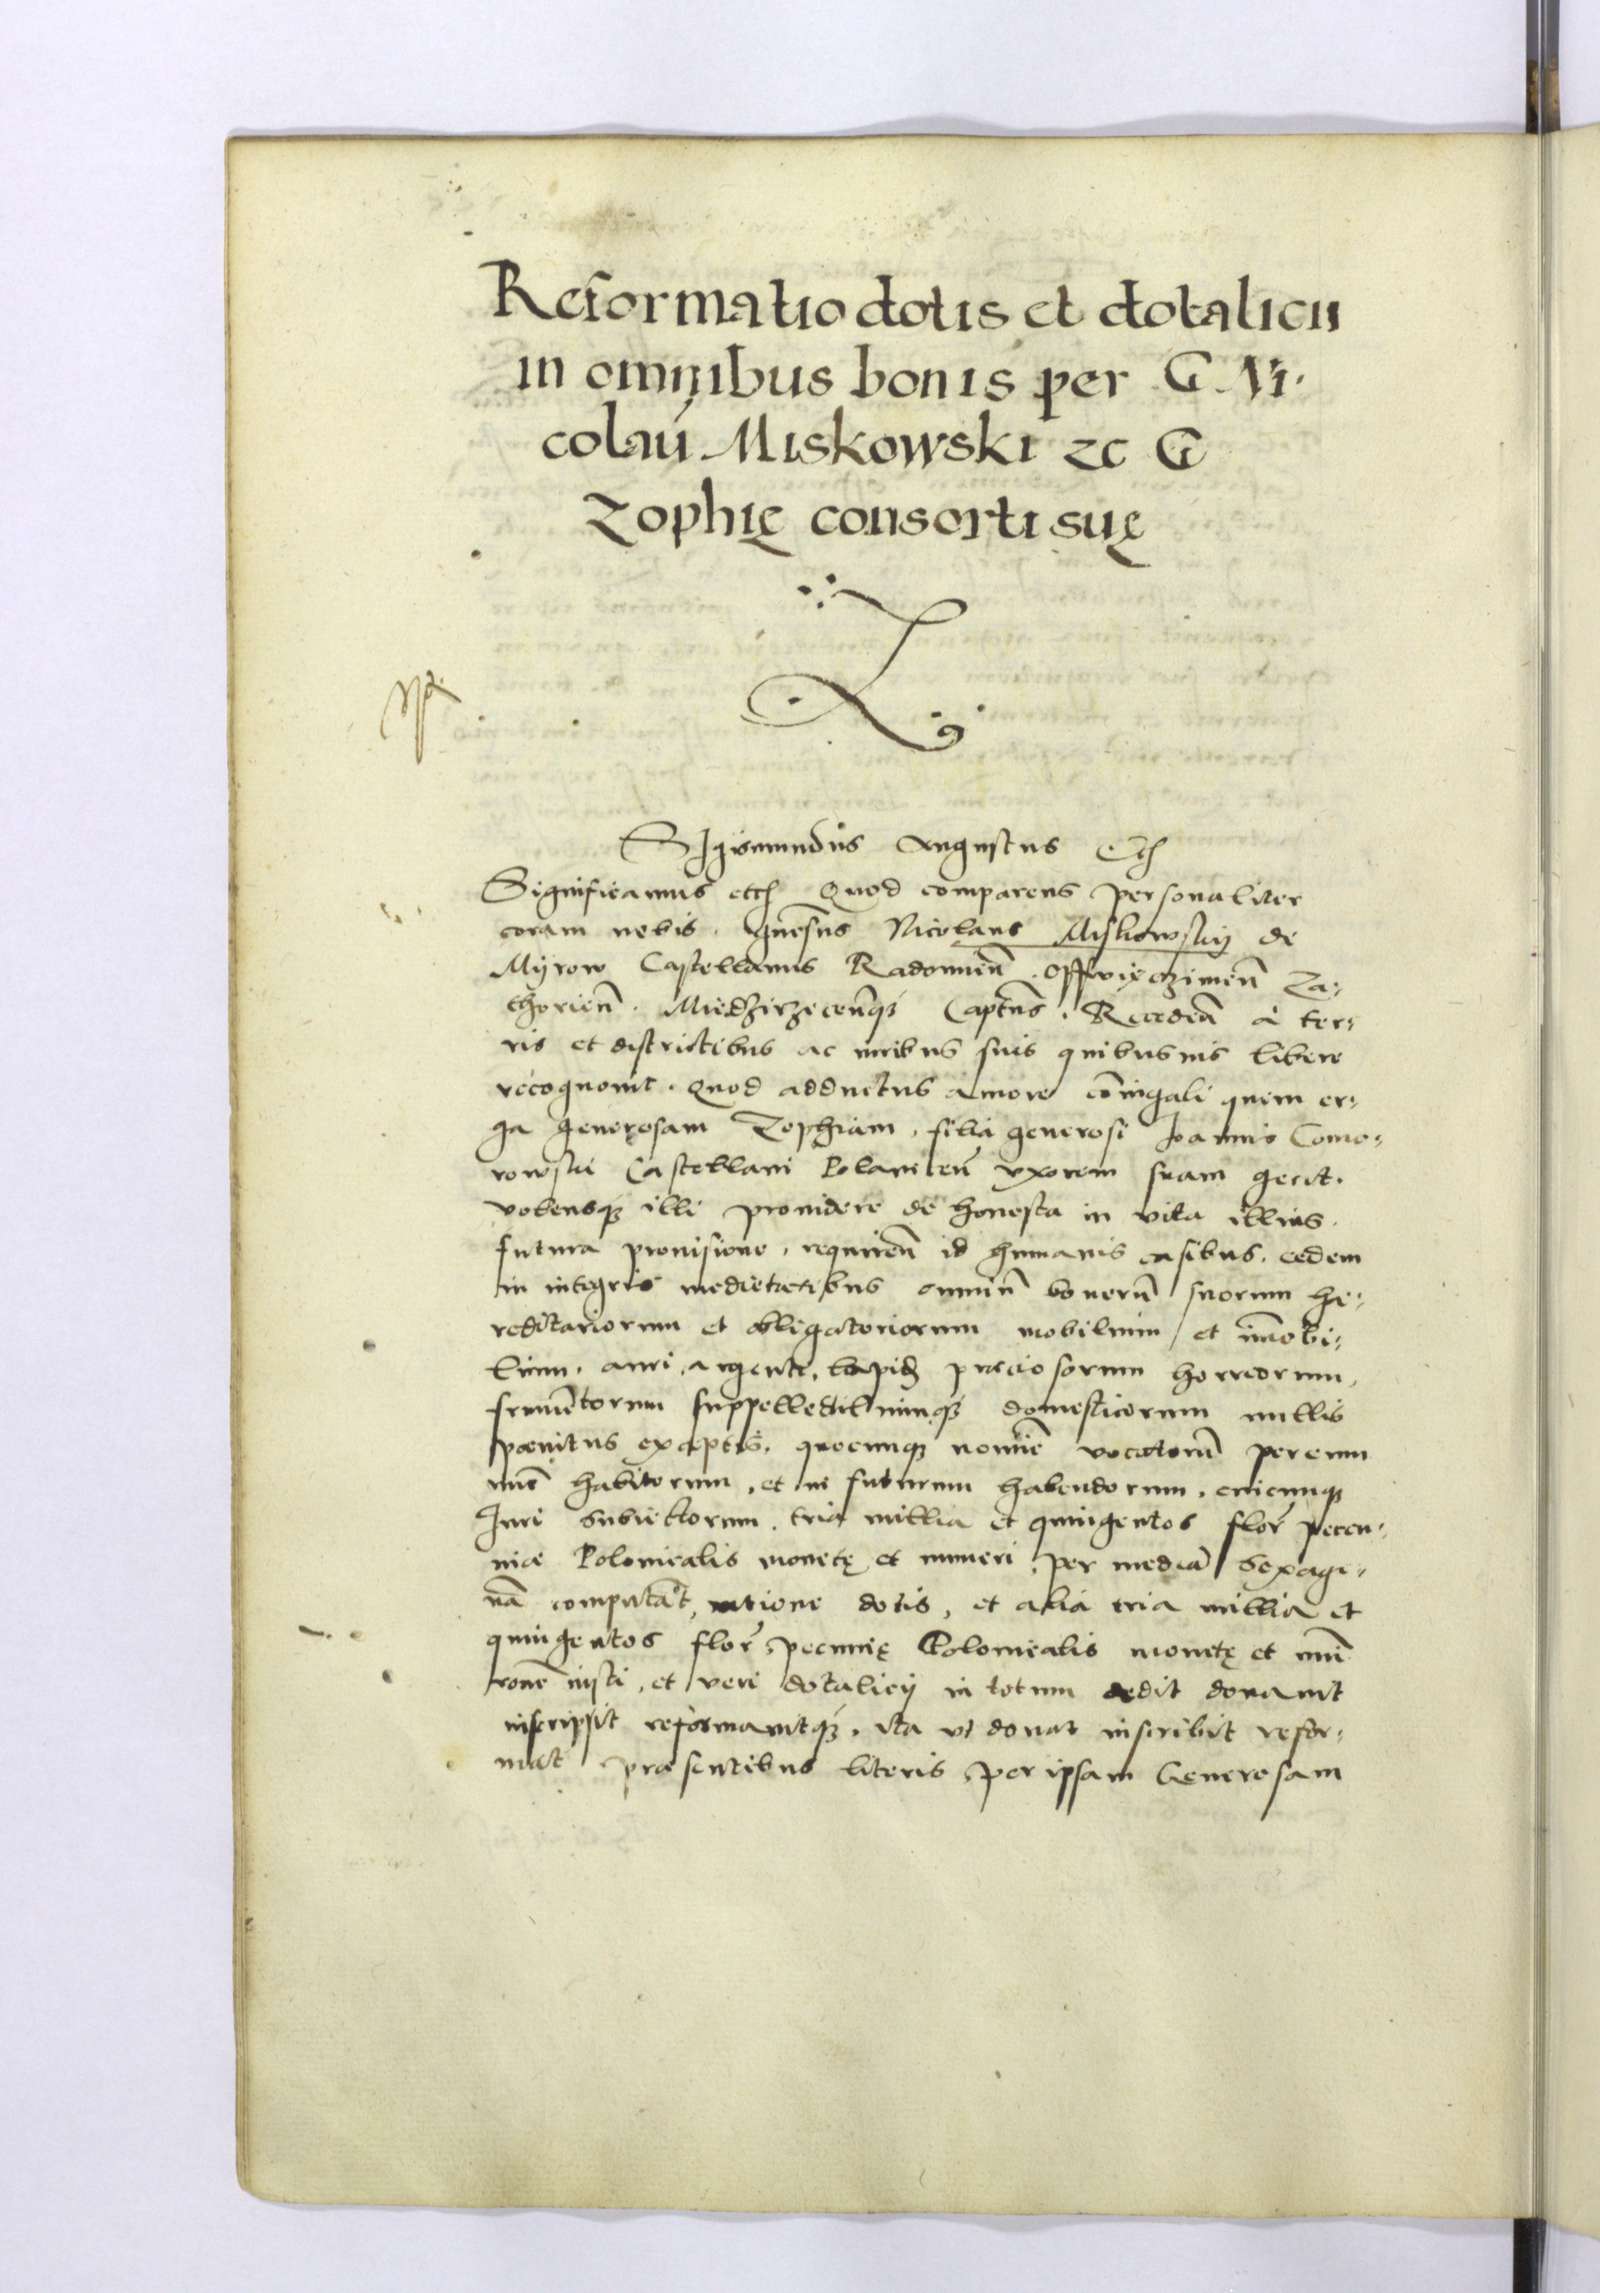 Reformatio dotis et dotalicii
in omnibus bonis per G Ni-
colaú Miskowski zc G
Zophię consorti suę
Sigismundus Augustus Etc
Significamus etc Quod comparens personaliter
coram nobis. gnēsus Nicolaus Miskowskij de
Mijrow Castellanus Radomieñ. Osswięczimeñ Za-
thorieñ. Miedzirzeceñq; Captñs. Recedeñ à ter-
ris et districtibus ac iuribus suis quibusuis libere
recognouit. Quod adductus amore cōniugali quem er-
ga generosam Zophiam, filiā generosi Joannis Como-
rowski Castellani Polanieceñ vxorem suam gerit.
volensq; illi prouidere de honesta in vita illius.
futura prouisione, requireñ id humanis casibus. eedem
in integris medietatibus omniũ bonorũ suorum he-
reditariorum et obligatoriorum mobilium et īmobi-
lium. auri, argenti, lapid preciosorum horreorum,
frumētorum suppellectiliumq; domesticorum nullis
pœnitus exceptis. quocunq; nomīe vocatorũ per eum
nūc habitorum, et in futurum habendorum, cuicunq;
Juri subiectorum. tria millia et quingentos flor pecu-
niæ Polonicalis monetę et numeri, per mediā sexage-
nā computāt, ratione dotis, et alia tria millia et
quingentos flor pecunię Polonicalis monetę et nūi
rōne iusti, et veri dotalicij in totum dedit donauit
inscripsit reformauitq;. ita vt donat inscribit refor-
mat præsentibus literis per ipsam Generosam